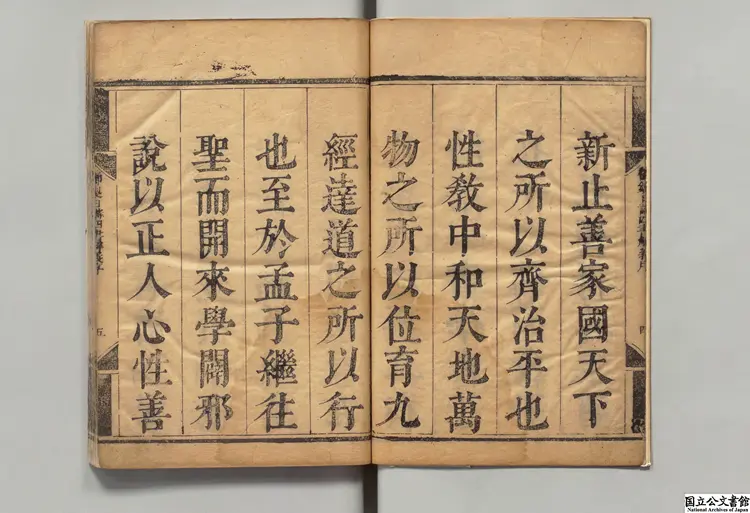 新止善家國天下
之所以齊治平也
性敎中和天地萬
物之所以位育九
經達道之所以行
也至於孟子繼往
聖而開來學闢邪
說以正人心性善
五
国立公文書館
National Archives of Japan